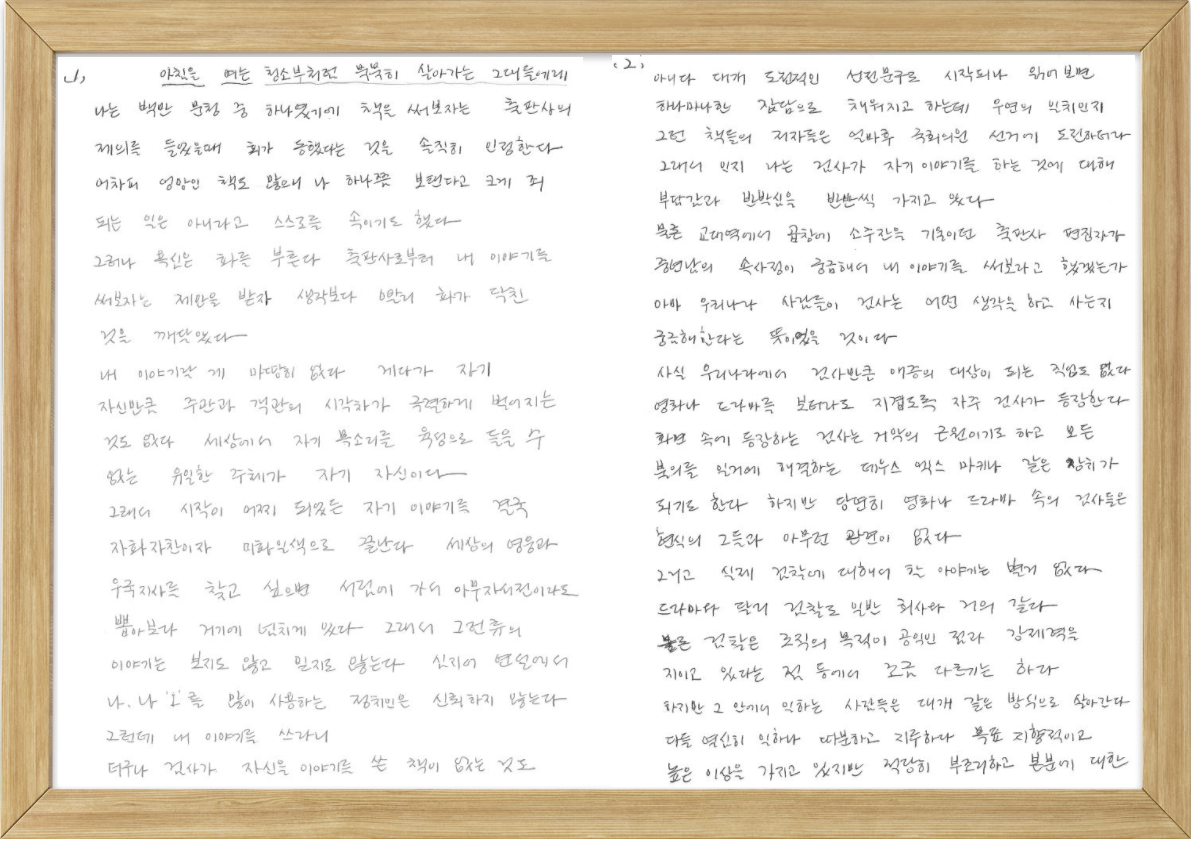 1)
아침을 여는 청소부처럼 묵묵히 살아가는 그대들에게
나는 백만 문청 중 하나였기에 책을 써보자는 출판사의
제의를 들었을때 회가 동했다는 것을 솔직히 인정한다
어차피 엉망인 책도 많으니 나 하나쯤 보탠다고 크게 죄
되는 일은 아니라고 스스로를 속이기도 했다
그러나 욕심은 화를 부른다 출판사로부터 내 이야기를
써보자는 제안을 받자 생각보다 빨리 화가 닥친
것을 깨닫았다
내 이야기랄 게 마땅히 없다 게다가 자기
자신만큼 주관과 객관의 시각차가 극명하게 벌어지는
것도 없다 세상에서 자기 목소리를 육성으로 들을 수
없는 유일한 주체가 자기 자신이다
그래서 시작이 어찌 되었든 자기 이야기를 결국
자화자찬이자 미화일색으로 끝난다 세상의 영웅과
우국지사를 찾고 싶으면 서점에 가서 아무자서전이라도
뽑아보다 거기에 넘치게 있다 그래서 그런류의
이야기는 보지도 않고 믿지도 않는다 심지어 연설에서
나, 나 '1'를 많이 사용하는 정치인은 신뢰하지 않는다
그런데 내 이야기를 쓰라니
더구나 검사가 자신을 이야기를 쓴 책이 없는 것도
(2)
아니다 대개 도전적인 선전문구로 시작되나 읽어보면
하나마나한 잡담으로 채워지고 하는데 우연의 일치인지
그런 책들의 저자들은 얼마후 국회의원 선거에 도전하더라
그래서 인지 나는 검사가 자기이야기를 하는 것에 대해
부담감과 반박심을 반반씩 가지고 있다
물론 교대역에서 곱창에 소주잔을 기울이던 출판사 편집자가
중년남의 속사정이 궁금해서 내 이야기를 써보라고 했겠는가
아마 우리나라 사람들이 검사는 어떤 생각을 하고 사는지
궁금해한다는 뜻이었을 것이다
사실 우리나라에서 검사만큼 애증의 대상이 되는 직업도 없다
영화나 드라마를 보더라도 지겹도록 자주 검사가 등장한다
화면 속에 등장하는 검사는 거악의 근원이기도 하고 모든
불의를 일거에 해결하는 데우스 엑스 마키나 같은 장치가
되기도 한다 하지만 당연히 영화나 드라마 속의 검사들은
현실의 그들과 아무런 관련이 없다
그리고 실제 검찰에 대해서 할 이야기는 별거 없다
드라마와 달리 검찰도 일반 회사와 거의 같다
물론 검찰은 조직의 목적이 공익인 점과 강제력을
지니고 있다는 점 등에서 조금 다르기는 하다
하지만 그 안에서 일하는 사람들은 대개 같은 방식으로 살아간다
다들 열심히 일하나 따분하고 지루하다 목표 지향적이고
높은 이상을 가지고 있지만 적당히 부조리하고 본분에 대한